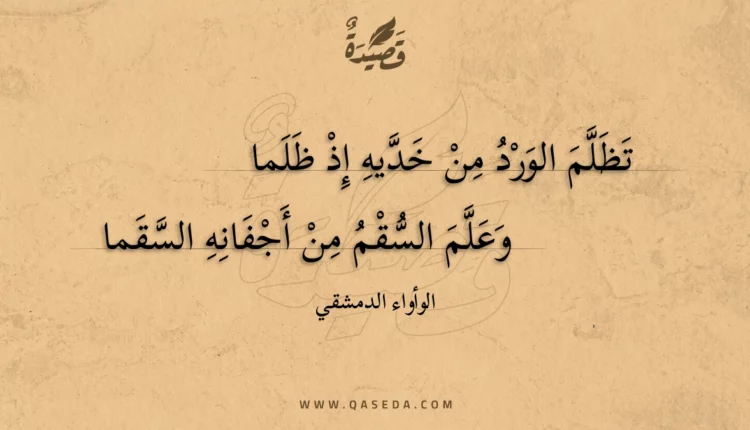 قَصِيْدَةٌ
تَظَلَّمَ الوَرْدُ مِنْ خَدَّيهِ إِذْ ظَلَما
وَعَلَّمَ السُّقْمُ مِنْ أَجْفَانِهِ السَّقَما
الوأواء الدمشقي
WWW.QASEDA.COM